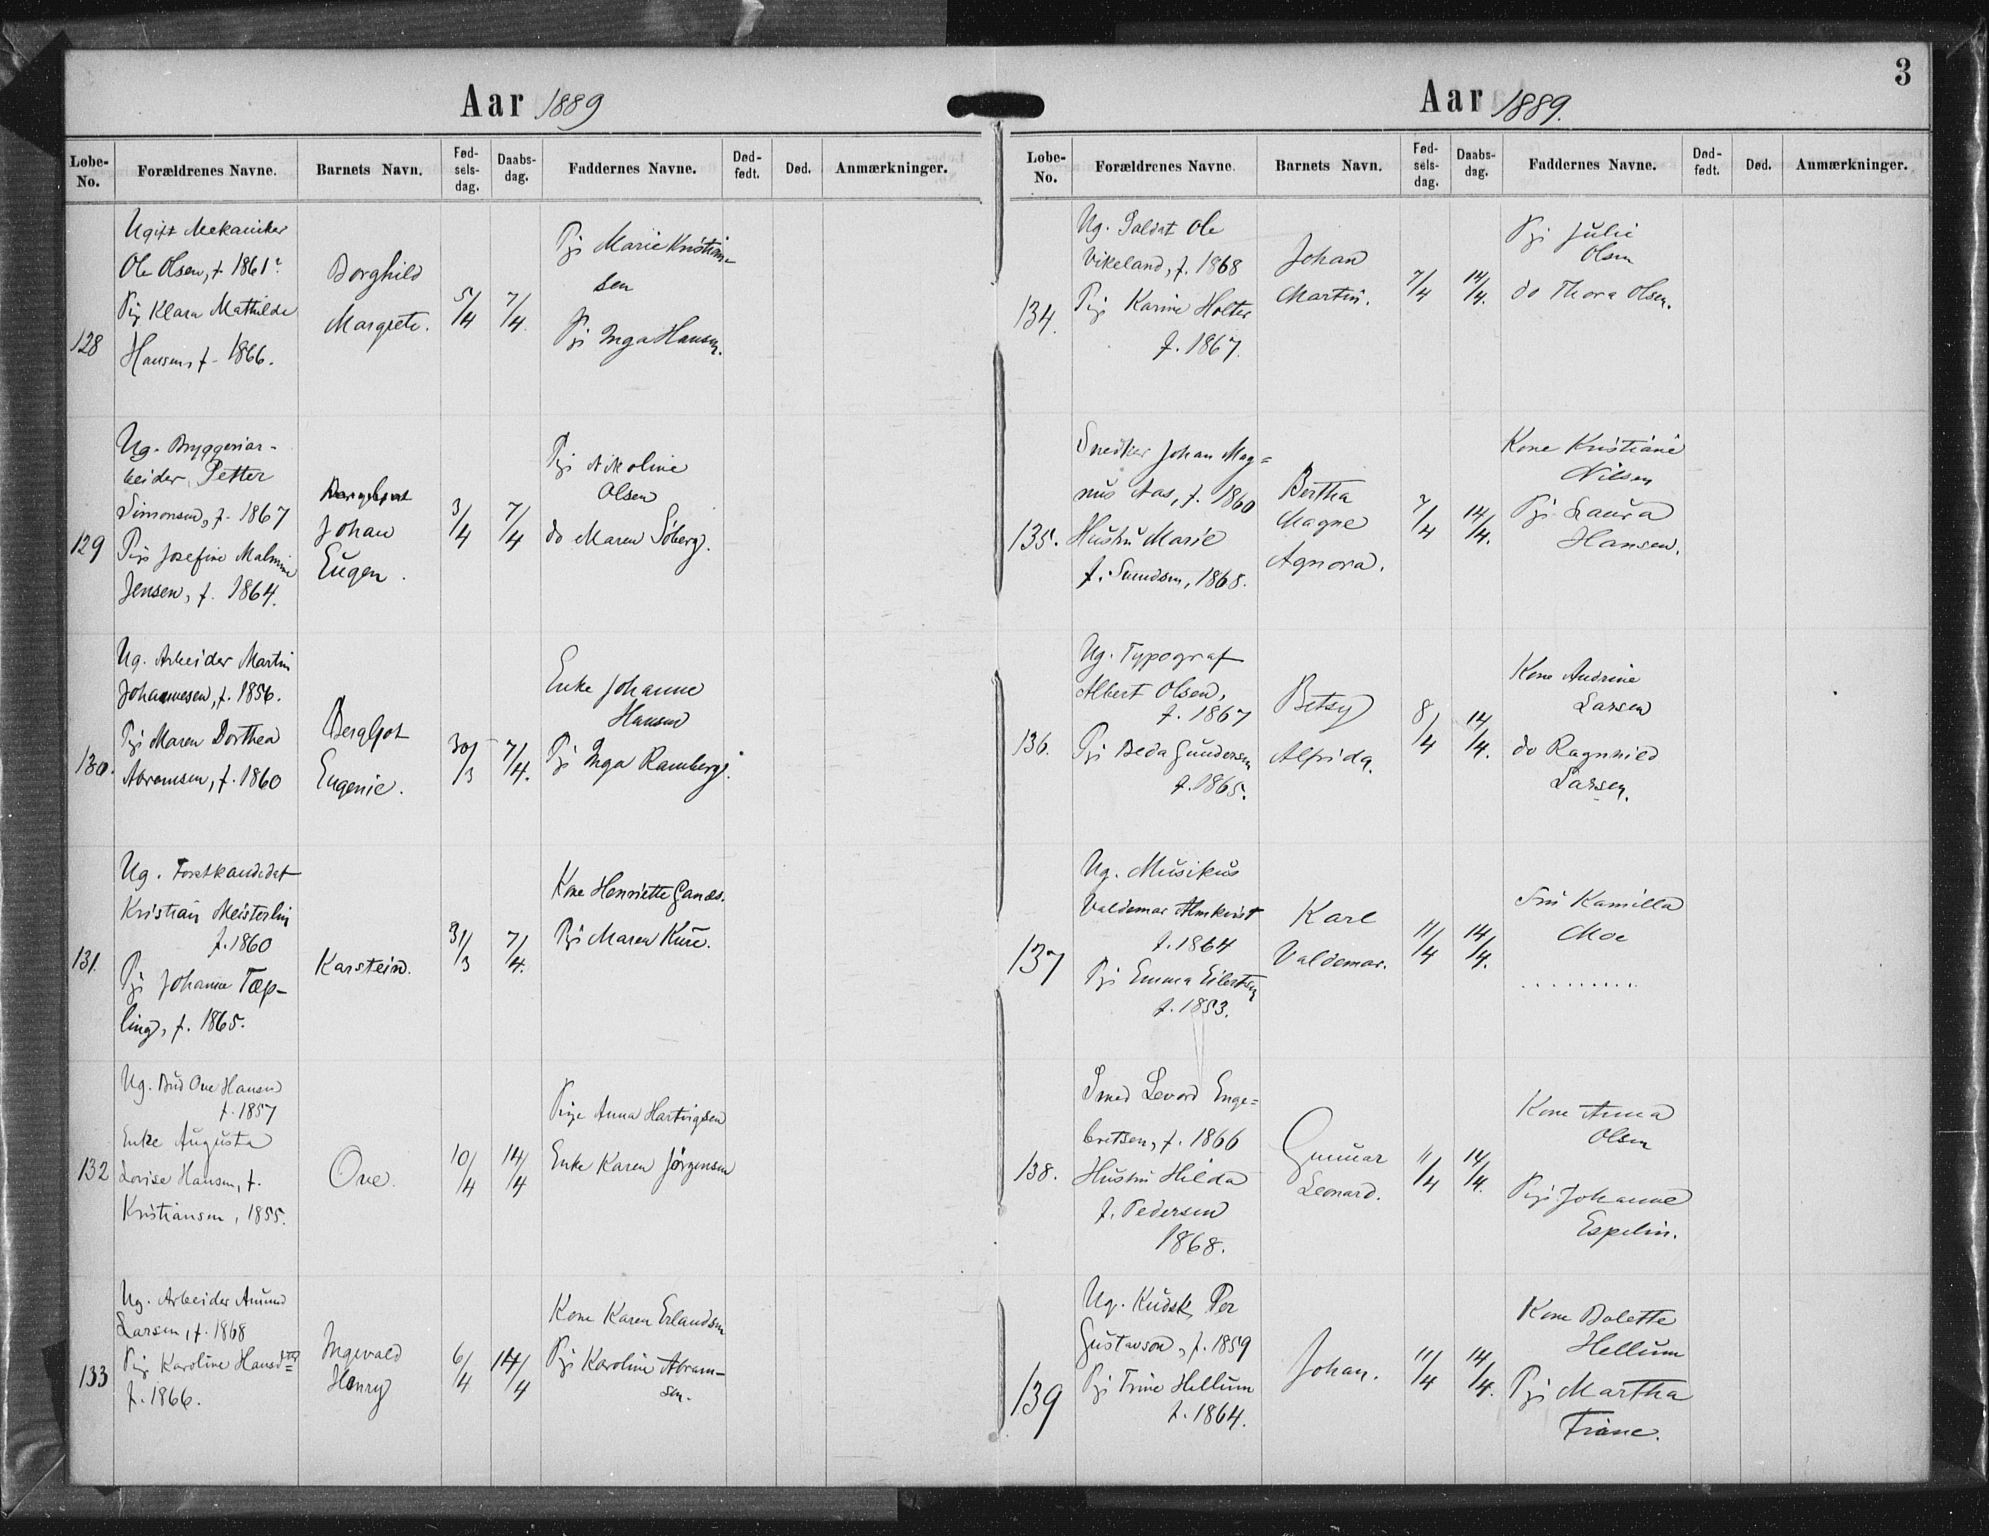 Aar 1889
Løbe-No.
Forældrenes Navne.
Barnets Navn.
Fød-sels-dag.
Daabs-dag.
Faddernes Navne.
Død-født.
Død.
Anmærkninger.
128
Ugift Mekaniker
Ole Olsen, f. 1861
Pig Klara Mathilde
Hansen, f. 1866.
Borghild
Margrete.
5/4
7/4.
Pige Marie Kristian=
sen
Pige Inga Hansen.
129
Ug. Bryggeriar-
beider Petter
Simonsen, f. 1867
Pige Josefine Malmine
Jensen, f. 1864.
Johan
Eugen.
3/4
7/4
Pige Nikoline
Olsen
do Maren Söberg.
130.
Ug. Arbeider Martin
Johannesen, f. 1856.
Pige Maren Dorthea
Abramsen, f. 1860
Bergljot
Eugenie.
30/3
7/4.
Enke Johanne
Hansen
Pige Inga Ramberg.
131.
Ug. Forstkandidat
Kristian Meisterlin
f. 1860
Pige Johanne Tøp-
ling, f. 1865.
Karstein.
31/3
7/4.
Kone Henriette Gands.
Pige Maren Kure.
132
Ug. Bud Ove Hansen
f. 1857
Enke Augusta
Lovise Hansen, f.
Kristiansen, 1855.
Ove.
10/4
14/4
Pige Anna Hartvigsen
Enke Karen Jørgensen
133
Ug. Arbeider Amund
Larsen, f. 1868
Pige Karoline Hansdtr
f. 1866.
Ingevald
Henry
6/4
14/4
Kone Karen Erlandsen
Pige Karoline Abram-
sen.
3
Aar 1889.
Løbe-No.
Forældrenes Navne.
Barnets Navn.
Fød-sels-dag.
Daabs-dag.
Faddernes Navne.
Død-født.
Død.
Anmærkninger.
134.
Ug. Soldat Ole
Vikeland, f. 1868
Pige Karine Holter
f. 1867.
Johan
Martin.
7/4
14/4.
Pige Julie
Olsen
do Thora Olsen.
135.
Snedker Johan Mag=
nus Aas, f. 1860
Hustru Marie
f. Svendsen, 1868.
Bertha
Magne
Agnora.
7/4
14/4.
Kone Kristiane
Nilsen
Pige Laura
Hansen.
136.
Ug. Typograf
Albert Olsen,
f. 1867
Pige Beda Gundersen
f. 1865.
Betsy
Alfrida.
8/4
14/4.
Kone Andrine
Larsen
do Ragnhild
Larsen.
137
Ug. Musikus
Valdemar Almkvist
f. 1864
Pige Emma Eilertsen
f. 1853.
Karl
Valdemar.
11/4
14/4.
Fru Kamilla
Moe
.........
138.
Smed Levord Enge=
bretsen, f. 1866
Hustru Hilda
f. Pedersen
1868.
Gunnar
Leonard.
11/4
14/4.
Kone Anna
Olsen
Pige Johanne
Espelin.
139
Ug. Kudsk Per
Gustavson, f. 1859
Pige Trine Hellum
f. 1864.
Johan.
11/4
14/4.
Kone Bolette
Hellum
Pige Martha
Friane.